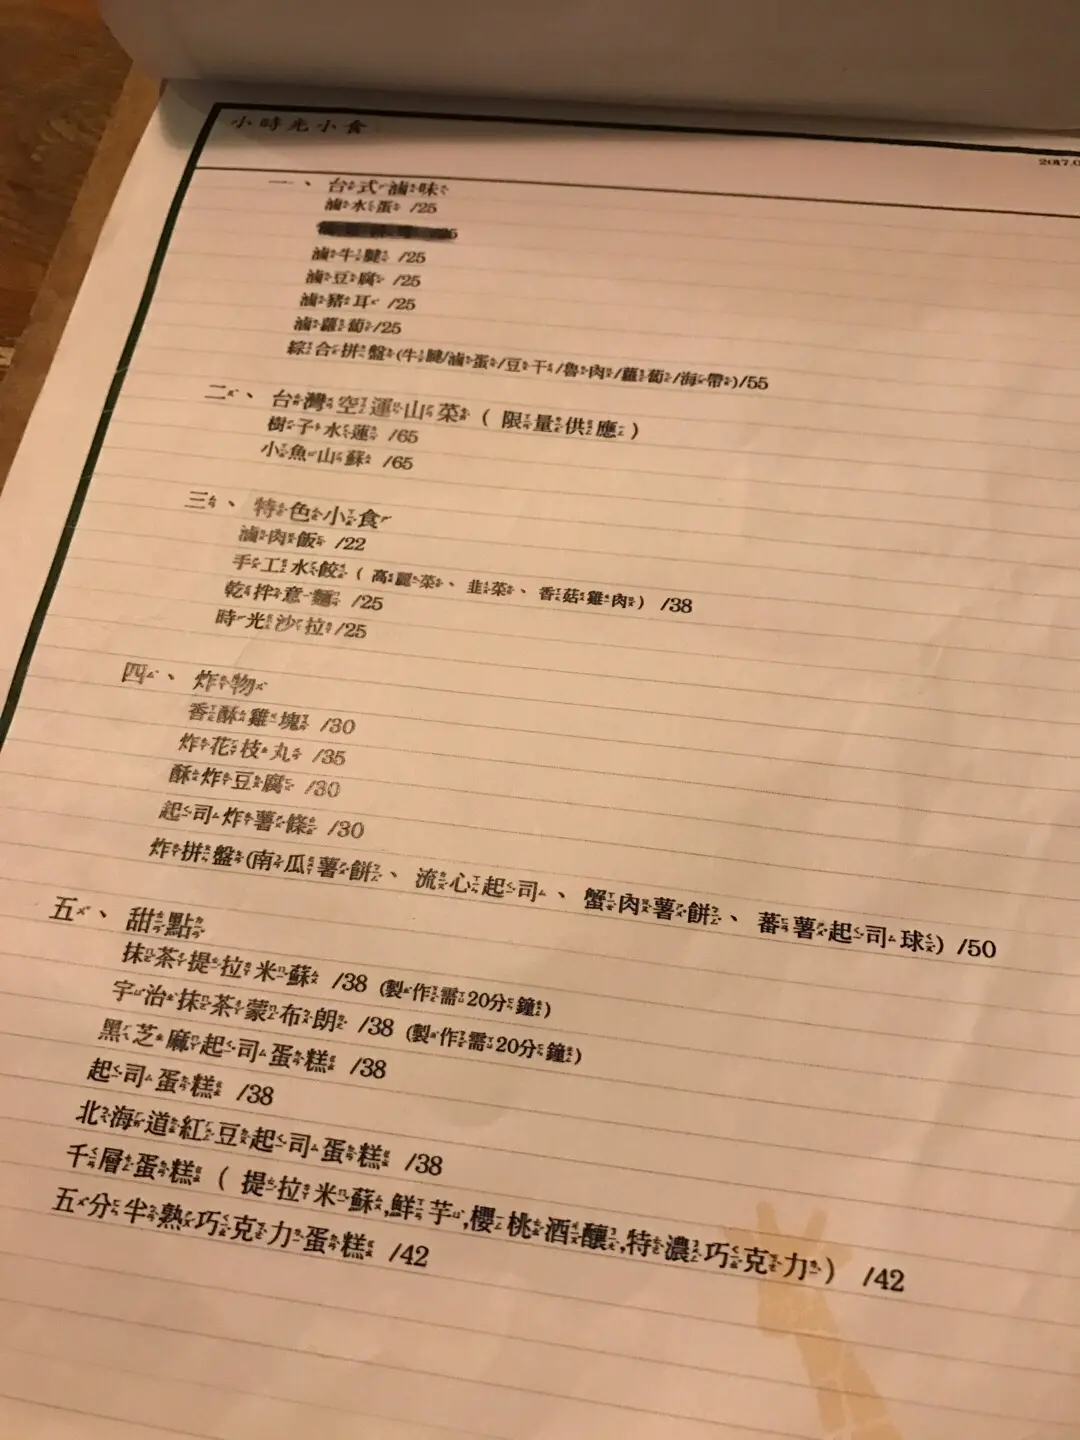 小時光小食
2017.0
一、台式滷味
滷水蛋 /25
滷牛腱 /25
滷豆腐 /25
滷豬耳 /25
滷蘿蔔/25
綜合拼盤(牛腱/滷蛋/豆干/魯肉/蘿蔔/海帶)/55
二、台灣空運山菜（限量供應）
樹子水蓮 /65
小魚山蘇 /65
三、特色小食
滷肉飯 /22
手工水餃（高麗菜、韭菜、香菇雞肉） /38
乾拌意麵 /25
時光沙拉/25
四、炸物
香酥雞塊 /30
炸花枝丸 /35
酥炸豆腐 /30
起司炸薯條 /30
炸拼盤(南瓜薯餅、流心起司、蟹肉薯餅、蕃薯起司球) /50
五、甜點
抹茶提拉米蘇 /38 (製作需20分鐘)
宇治抹茶蒙布朗 /38 (製作需20分鐘)
黑芝麻起司蛋糕 /38
起司蛋糕 /38
北海道紅豆起司蛋糕 /38
千層蛋糕（提拉米蘇,鮮芋,櫻桃酒釀,特濃巧克力） /42
五分半熟巧克力蛋糕 /42